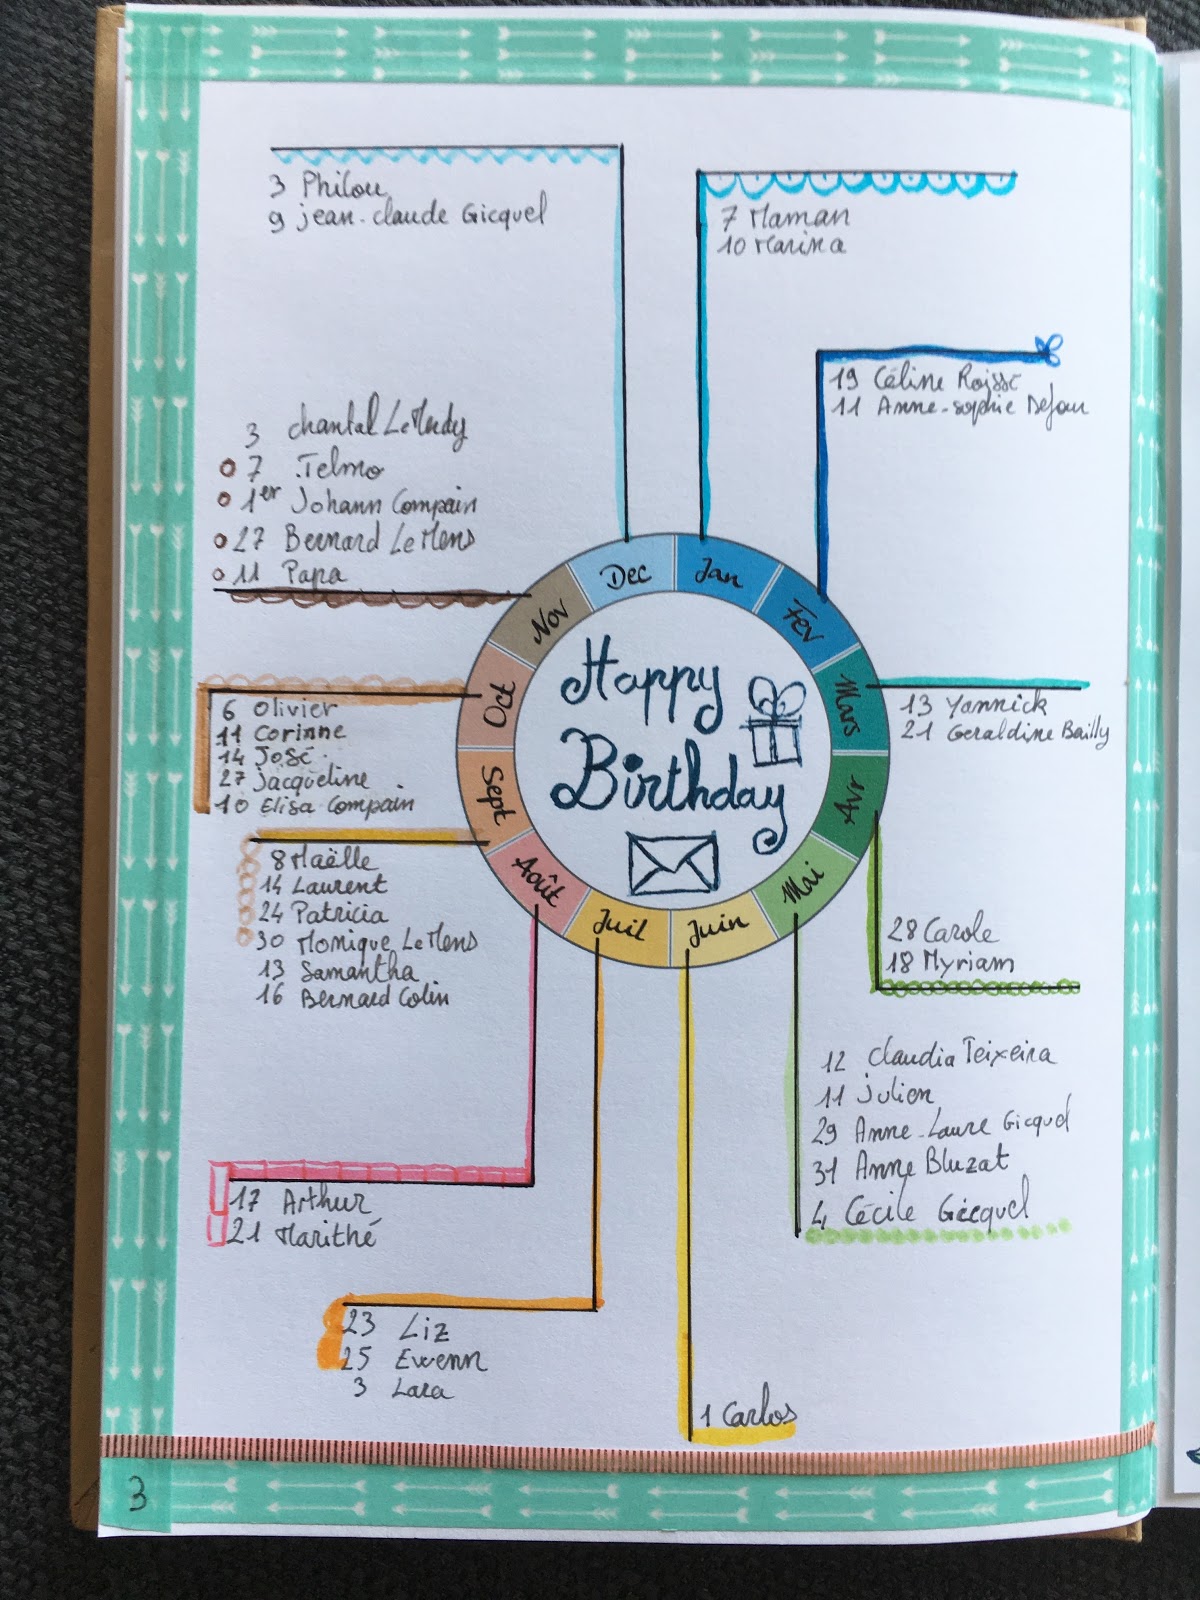 3 Philou
9 jean-claude Gicquel
7 Maman
10 Marina
19 Céline
11 Anne-sophie
3 chantal
7 Telmo
1er Johann Compain
27 Bernard Le Mens
11 Papa
Dec
Jan
Fev
Mars
Avr
Mai
Juin
Juil
Août
Sept
Oct
Nov
Happy
Birthday
13 Yannick
21 Geraldine Bailly
6 Olivier
11 Corinne
14 José
27 Jacqueline
10 Elisa Compain
8 Maëlle
14 Laurent
24 Patricia
30 Monique Le Mens
13 Samantha
16 Bernard Colin
28 Carole
18 Myriam
12 Claudia Teixeira
11 Julien
29 Anne-Laure Gicquel
31 Anne Bluzat
4 Cécile Gicquel
17 Arthur
21 Marithé
23 Liz
25 Ewenn
3 Lara
1 Carlos
3